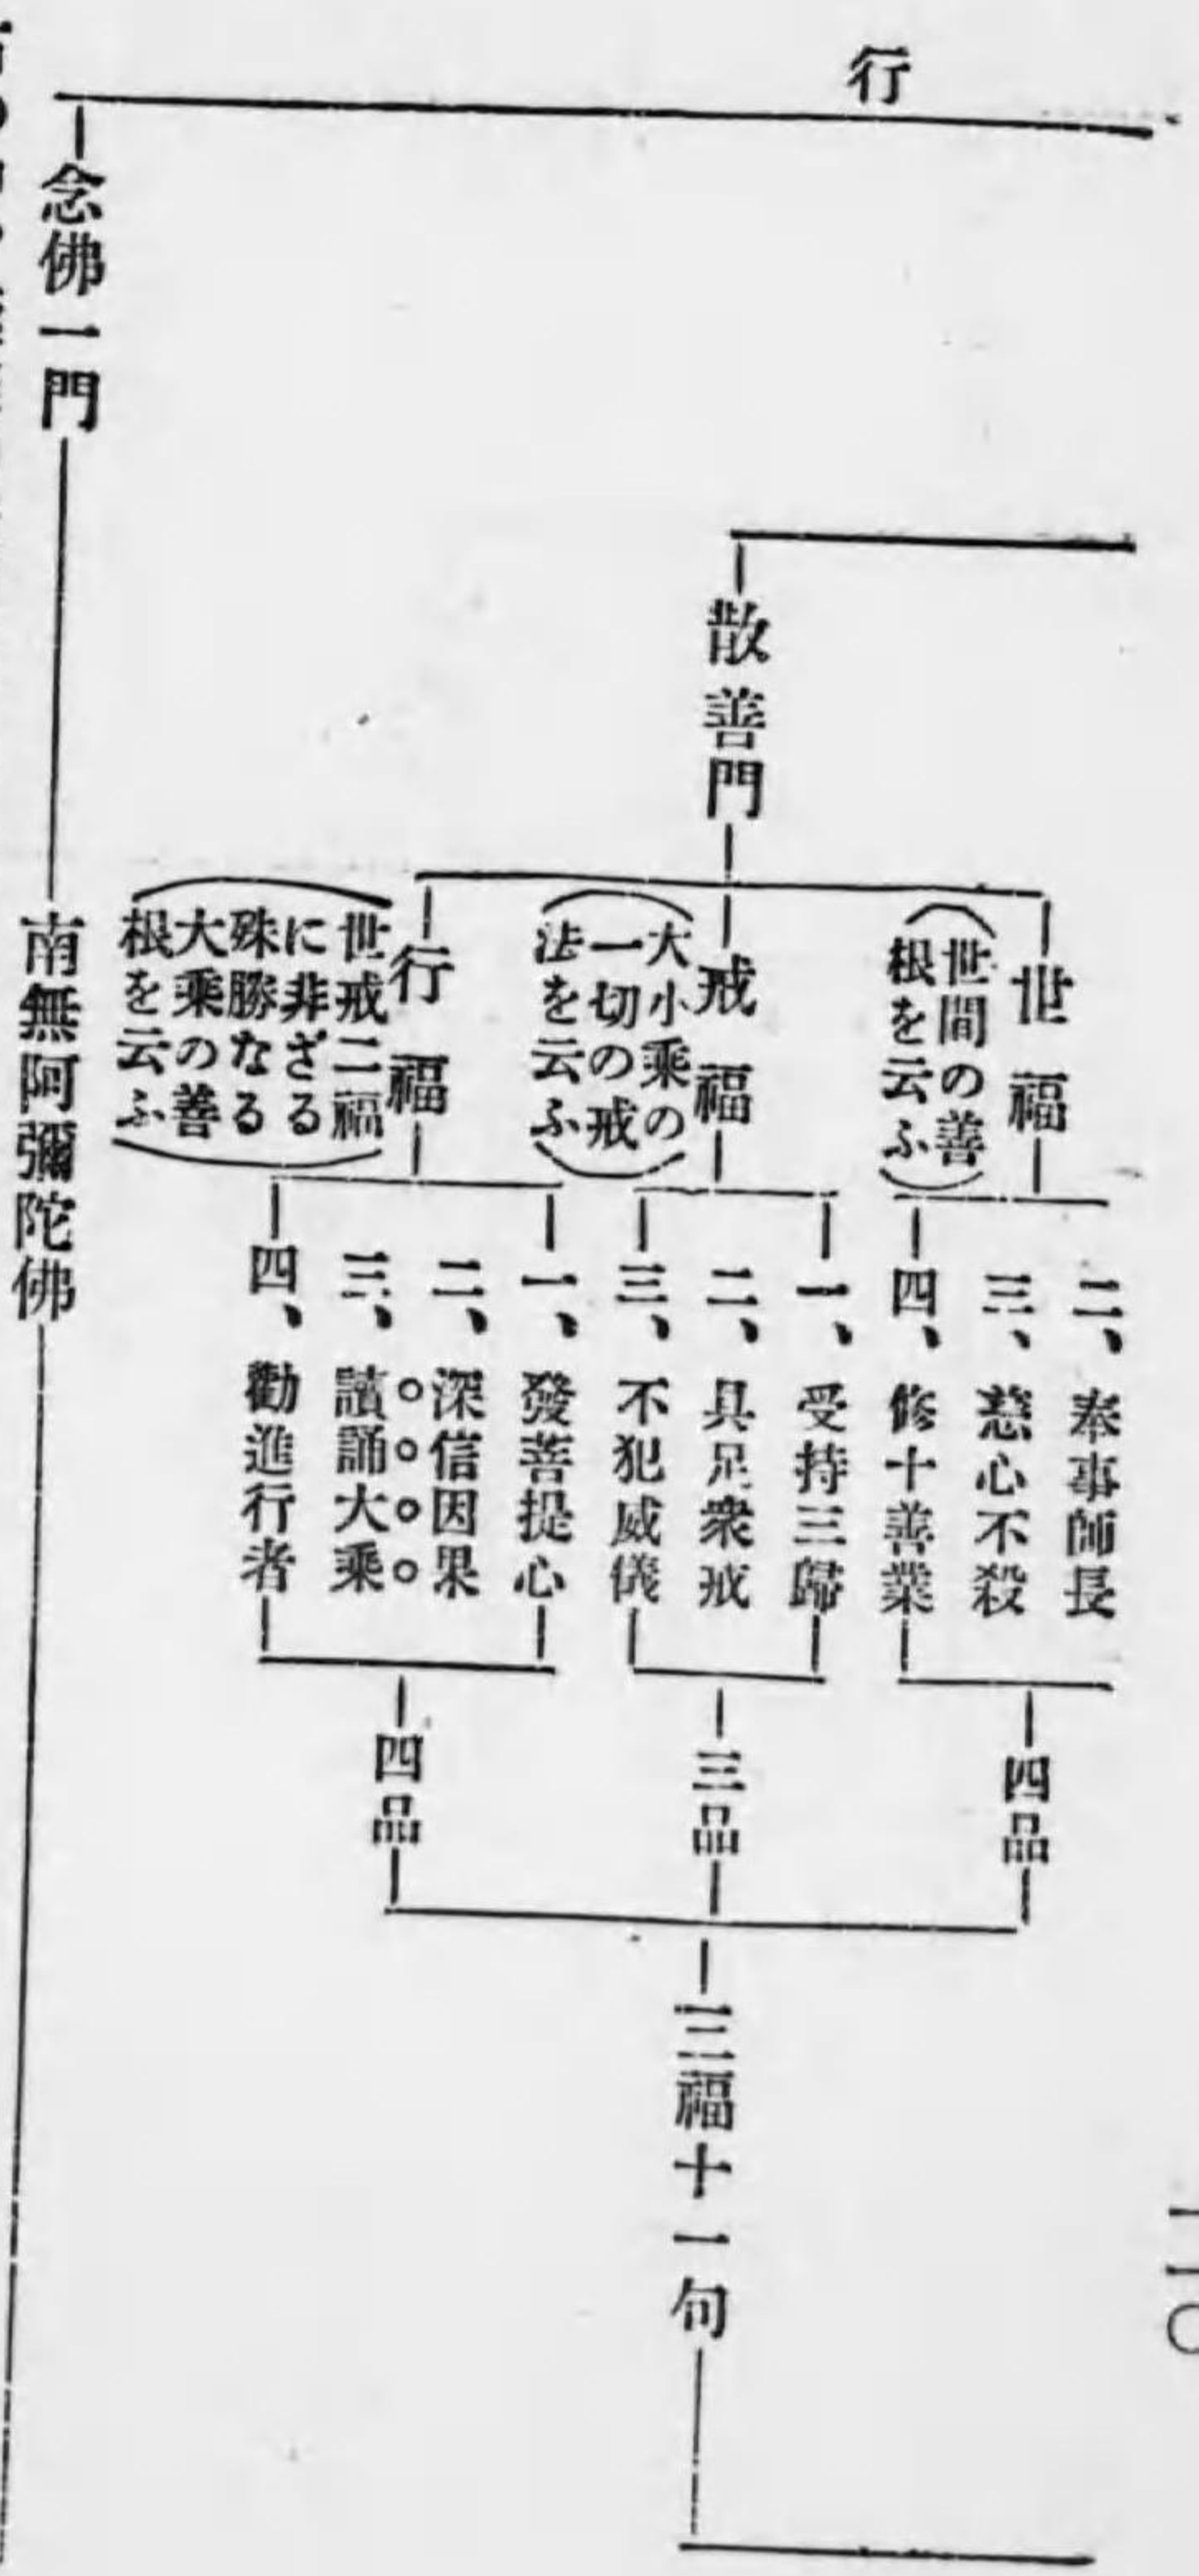 行
散善門
世福
(世間の善
根を云ふ)
二、奉事師長
三、慈心不殺
四、修十善業
四品
戒福
(大小乘の
一切の戒
法を云ふ)
一、受持三歸
二、具足衆戒
三、不犯威儀
三品
行福
(世戒二福
に非ざる
殊勝なる
大乘の善
根を云ふ)
一、發菩提心
二、深信因果
三、讀誦大乘
四、勸進行者
四品
三福十一句
念佛一門
南無阿彌陀佛
一一〇